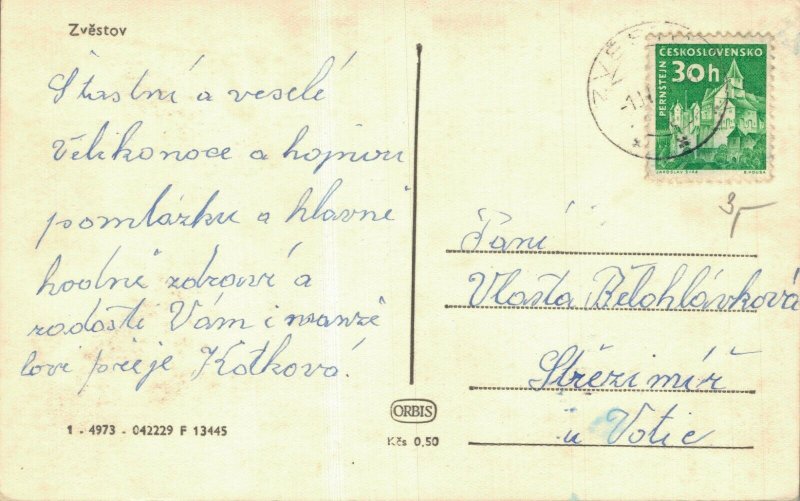 Zvěstov
Šťastné a veselé
Velikonoce a hojnou
pomlázku a hlavně
hodně zdraví a
radosti Vám i manže
lovi přeje Kotková.
1 - 4973 - 042229 F 13445
ORBIS
Kčs 0,50
ČESKOSLOVENSKO
30h
PERNŠTEJN
JAROSLAV ŠVÁB
3,-
Paní
Vlasta Bělohlávková
Střezimíř
u Votic